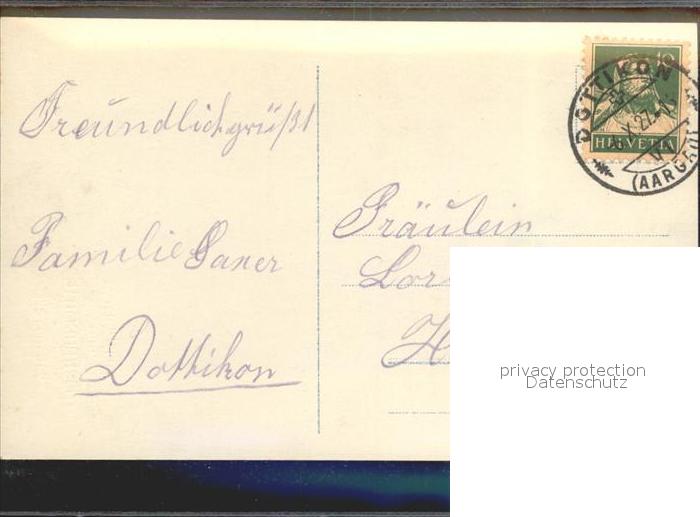 Freundlich grüßt
Familie Saxer
Dottikon
Fräulein
10
HELVETIA
DOTTIKON
(AARGAU)
privacy protection
Datenschutz